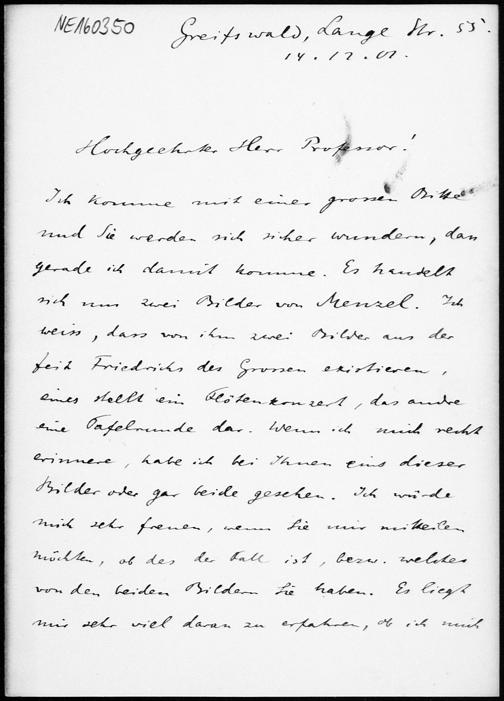 NE160350
Greifswald, Lange Str. 55.
14.12.01.
Hochgeehrter Herr Professor!
Ich komme mit einer grossen Bitte
und Sie werden sich sicher wundern, dass
gerade ich damit komme. Es handelt
sich um zwei Bilder von Menzel. Ich
weiss, dass von ihm zwei Bilder aus der
Zeit Friedrichs des Grossen existieren,
eines stellt ein Flötenkonzert, das andre
eine Tafelrunde dar. Wenn ich mich recht
erinnere, habe ich bei Ihnen eins dieser
Bilder oder gar beide gesehen. Ich würde
mich sehr freuen, wenn Sie mir mitteilen
möchten, ob des der Fall ist, bezw. welches
von den beiden Bildern Sie haben. Es liegt
mir sehr viel daran zu erfahren, ob ich mich